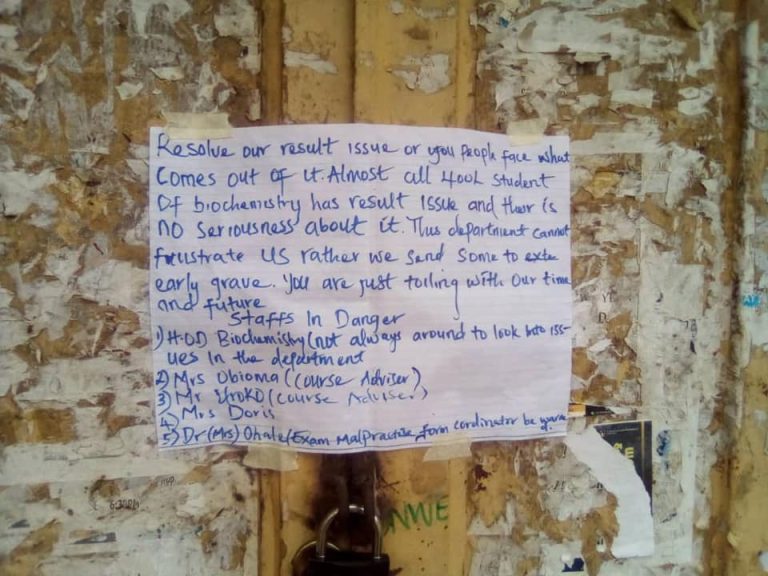 Resolve our result issue or you people face what
comes out of it. Almost all 400L student
Of biochemistry has result issue and their is
no seriousness about it. This department cannot
frustrate us rather we send some to exte
early grave. You are just toiling with our time
and future
Staffs In Danger
1) H.O.D Biochemistry (not always around to look into iss-
ues in the department
2) Mrs Obioma (course Adviser)
3) Mr (course Adviser)
4) Mrs Doris
5) Dr (Mrs) Ohale (Exam Malpractise form cordinator be warned
NWE